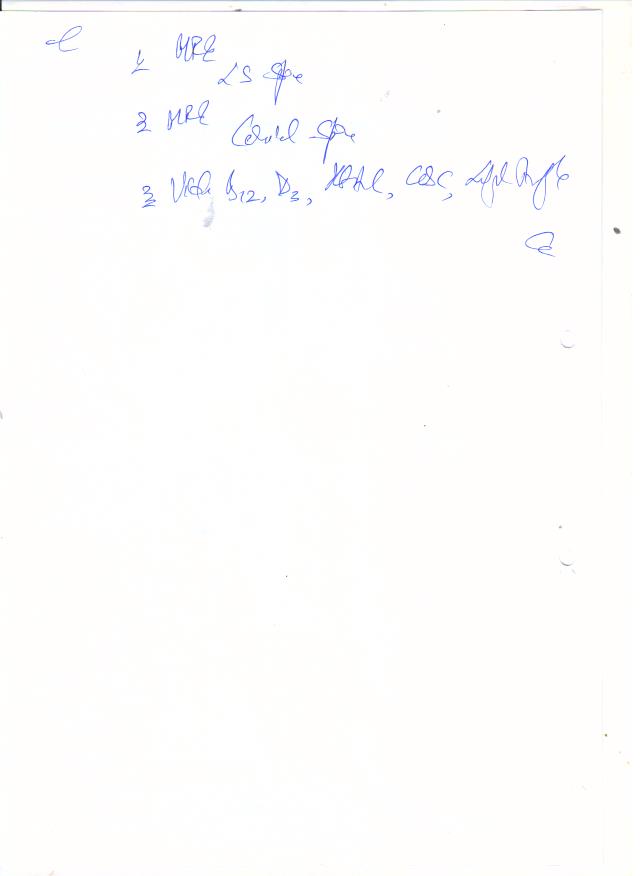 1 MRI
LS Spine
2 MRI
Cervical Spine
3 Vit B12, D3, HbA1c, CBC, Lipid Profile